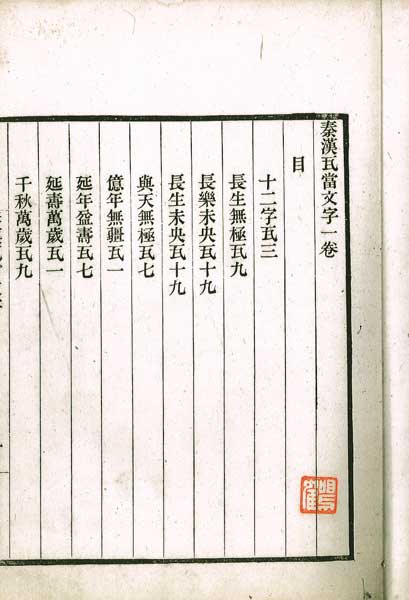 秦漢瓦當文字一卷
目
十二字瓦三
長生無極瓦九
長樂未央瓦十九
長生未央瓦十九
與天無極瓦七
億年無疆瓦一
延年益壽瓦七
延壽萬歲瓦一
千秋萬歲瓦九